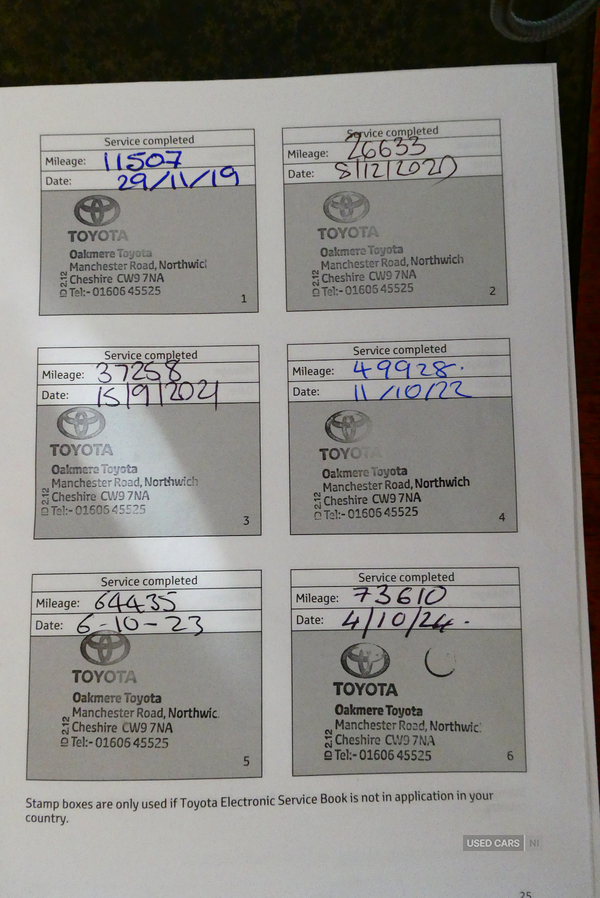 Service completed
Mileage: 11507
Date: 29/11/19
TOYOTA
Oakmere Toyota
Manchester Road, Northwich
Cheshire CW9 7NA
Tel:- 01606 45525
ID 2.12
1
Service completed
Mileage: 26633
Date: 8/12/2020
TOYOTA
Oakmere Toyota
Manchester Road, Northwich
Cheshire CW9 7NA
Tel:- 01606 45525
ID 2.12
2
Service completed
Mileage: 37258
Date: 15/9/2021
TOYOTA
Oakmere Toyota
Manchester Road, Northwich
Cheshire CW9 7NA
Tel:- 01606 45525
ID 2.12
3
Service completed
Mileage: 49928.
Date: 11/10/22
TOYOTA
Oakmere Toyota
Manchester Road, Northwich
Cheshire CW9 7NA
Tel:- 01606 45525
ID 2.12
4
Service completed
Mileage: 64435
Date: 6-10-23
TOYOTA
Oakmere Toyota
Manchester Road, Northwic
Cheshire CW9 7NA
Tel:- 01606 45525
ID 2.12
5
Service completed
Mileage: 73610
Date: 4/10/24.
TOYOTA
Oakmere Toyota
Manchester Road, Northwic
Cheshire CW9 7NA
Tel:- 01606 45525
ID 2.12
6
Stamp boxes are only used if Toyota Electronic Service Book is not in application in your
country.
USED CARS NI
25